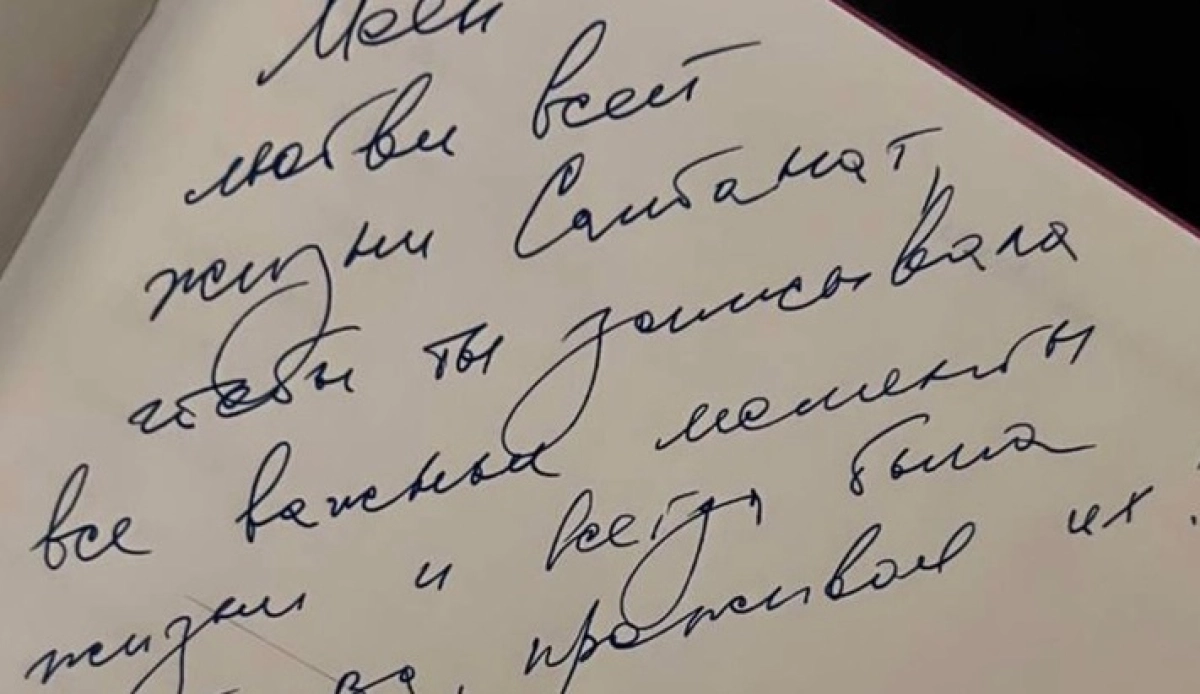 Моей
любви всей
жизни Салтанат,
чтобы ты записывала
все важные моменты
жизни и всегда была
проживая их